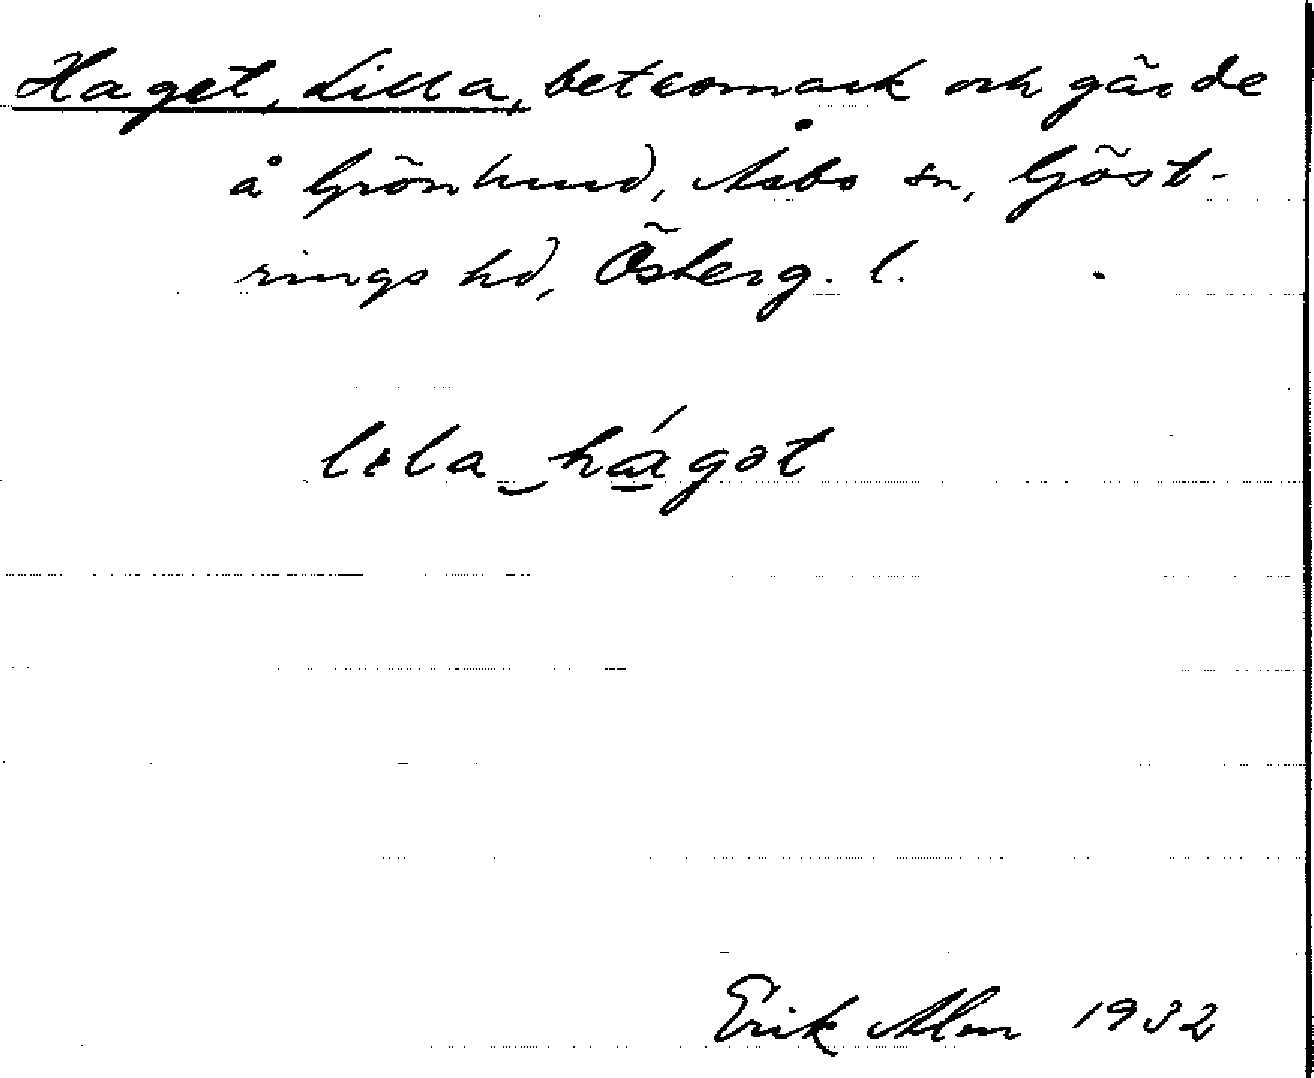 Haget, Lilla, betesmark och gärde
å Grönlund, Åsbo sn, Göst-
rings hd, Österg. l.
lɩla‿há̱gət
Erik Alm 1932